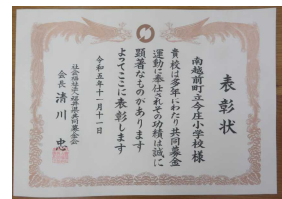 表彰状
南越前町立今庄小学校様
貴校は多年にわたり共同募金
運動に奉仕されその功績は誠に
顕著なものがあります
よってここに表彰します
令和五年十一月十一日
社会福祉法人福井県共同募金会
会長 清川 忠